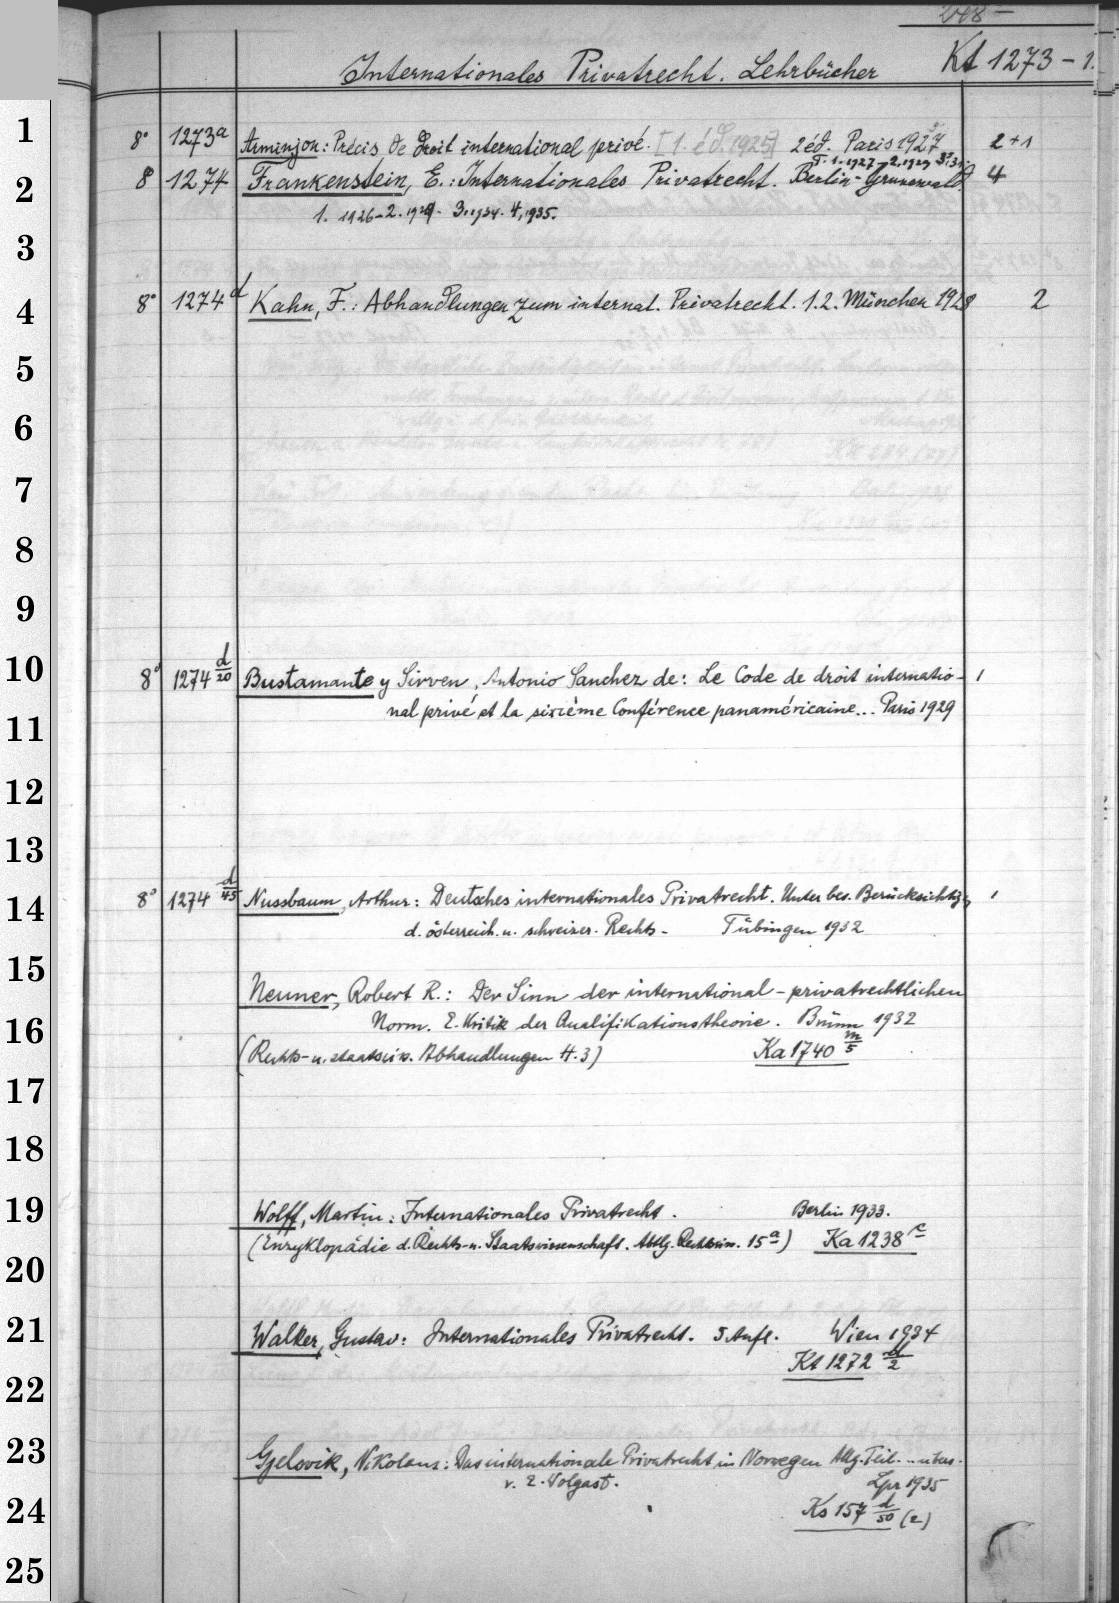 248 —
Internationales Privatrecht. Lehrbücher Kt 1273 – 1.
1
8° 1273a Arminjon: Précis de Droit international privé. [1. éd. 1925] 2 éd. Paris 1927 2+1
T. 1. 1927 – 2. 1929 3.
2
8 1274 Frankenstein, E.: Internationales Privatrecht. Berlin-Grunewald 4
1. 1926 – 2. 1929. 3. 1934. 4. 1935.
3
4
8° 1274 d Kahn, F.: Abhandlungen zum internat. Privatrecht. 1.2. München 1928 2
5
6
7
8
9
10
8° 1274 d/20 Bustamante y Sirven, Antonio Sanchez de: Le Code de droit internatio- 1
nal privé et la sixième Conférence panaméricaine... Paris 1929
11
12
13
14
8° 1274 d/45 Nussbaum, Arthur: Deutsches internationales Privatrecht. Unter bes. Berücksichtig. 1
d. österreich. u. schweizer. Rechts – Tübingen 1932
15
Neuner, Robert R.: Der Sinn der international-privatrechtlichen
Norm. E. Kritik der Qualifikationstheorie. Brünn 1932
16
(Rechts- u. staatswis. Abhandlungen H. 3) Ka 1740 m/5
17
18
19
Wolff, Martin: Internationales Privatrecht. Berlin 1933.
(Enzyklopädie d. Rechts- u. Staatswissenschaft. Abtlg. Rechtswiss. 15a) Ka 1238
20
21
Walker, Gustav: Internationales Privatrecht. 5 Aufl. Wien 1934
Kt 1272 d/2
22
23
Gjelsvik, Nikolaus: Das internationale Privatrecht in Norwegen Allg. Teil. .. übers.
v. E. Wolgast. Lpz 1935
24
Ks 157 d/50 (2)
25